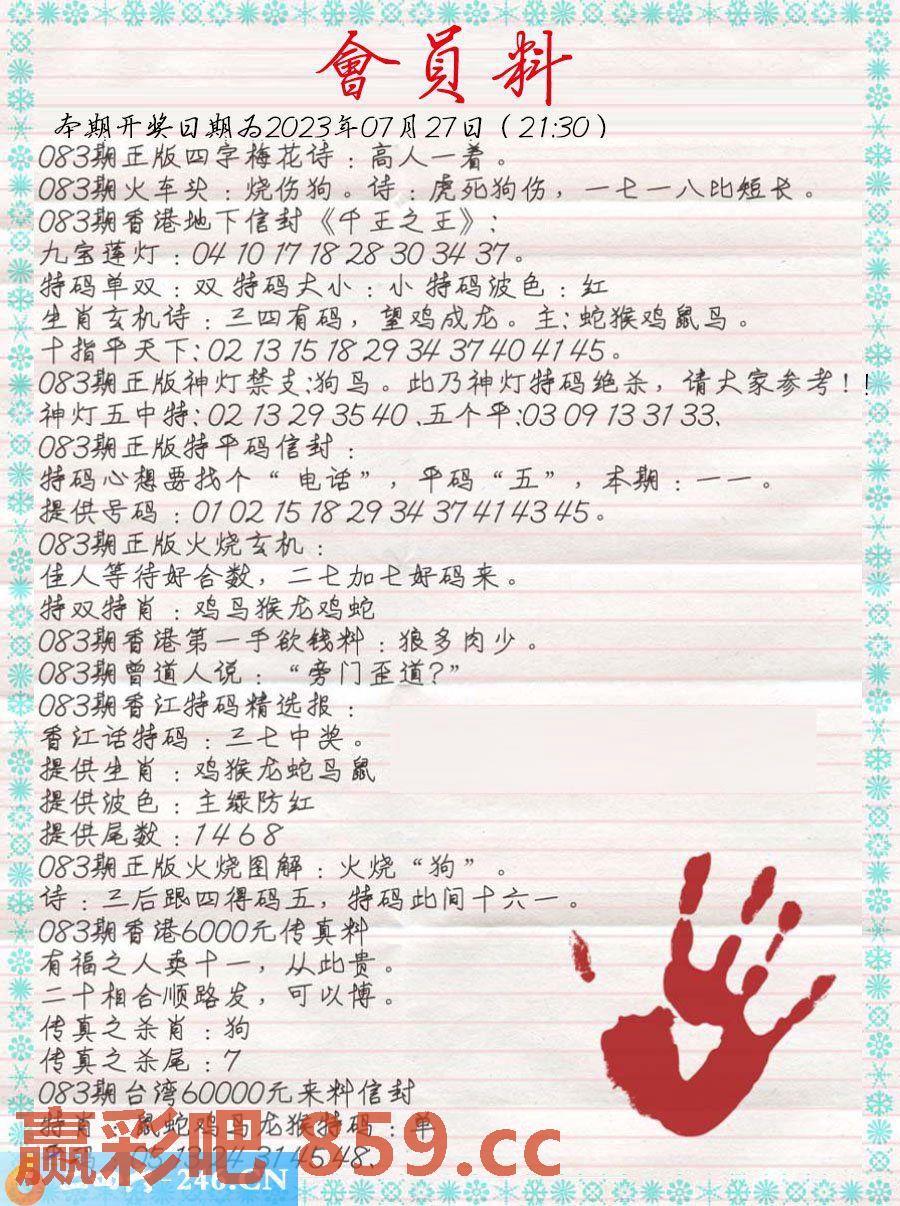 會員料
本期开奖日期为2023年07月27日（21:30）
083期正版四字梅花诗：高人一着。
083期火车头：烧伤狗。诗：虎死狗伤，一七一八比短长。
083期香港地下信封《千王之王》：
九宝莲灯：04 10 17 18 28 30 34 37。
特码单双：双 特码大小：小 特码波色：红
生肖玄机诗：三四有码，望鸡成龙。主：蛇猴鸡鼠马。
十指平天下：02 13 15 18 29 34 37 40 41 45。
083期正版神灯禁支：狗马。此乃神灯特码绝杀，请大家参考！！
神灯五中特：02 13 29 35 40、五个平：03 09 13 31 33、
083期正版特平码信封：
特码心想要找个“电话”，平码“五”，本期：一一。
提供号码：01 02 15 18 29 34 37 41 43 45。
083期正版火烧玄机：
佳人等待好合数，二七加七好码来。
特双特肖：鸡马猴龙鸡蛇
083期香港第一手欲钱料：狼多肉少。
083期曾道人说：“旁门歪道？”
083期香江特码精选报：
香江话特码：三七中奖。
提供生肖：鸡猴龙蛇马鼠
提供波色：主绿防红
提供尾数：1 4 6 8
083期正版火烧图解：火烧“狗”。
诗：三后跟四得码五，特码此间十六一。
083期香港6000元传真料
有福之人卖十一，从此贵。
二十相合顺路发，可以博。
传真之杀肖：狗
传真之杀尾：7
083期台湾60000元来料信封
特肖：鼠蛇鸡马龙猴特码：单
05 13 24 31 45 48、
赢彩吧 859.cc
-246.CN